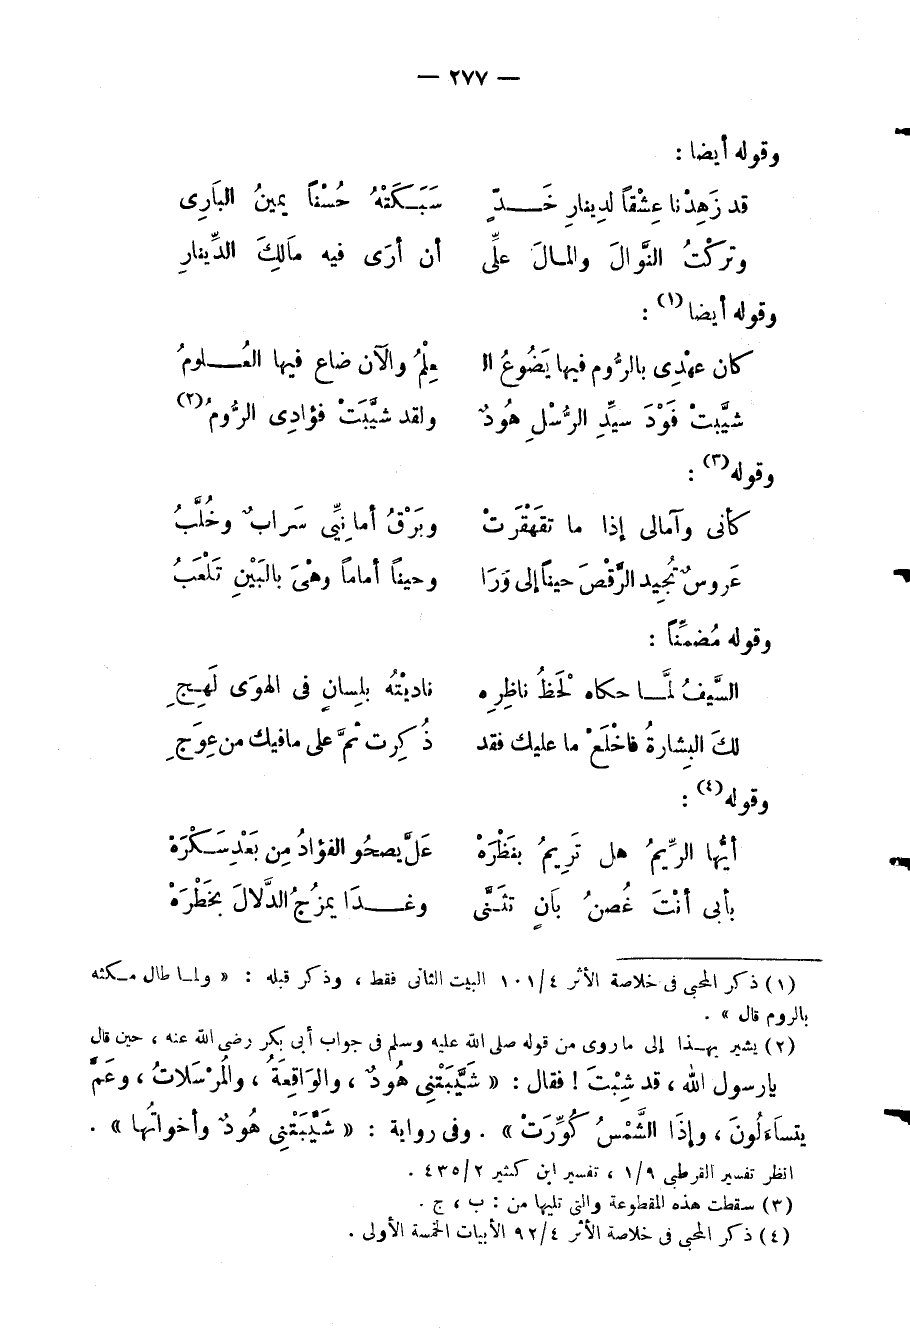 — ٢٧٧ —
وقوله أيضا :
قد زَهِدْنا عِشْقاً لدِينارِ خَـــدٍّ سَبَـكَتْهُ حُسْناً يمينُ البَارِى
وتركْتُ النَّوالَ والمـالَ علِّى أن أرَى فيه مَالِكَ الدِّينارِ
وقوله أيضا(١) :
كان عهْدِى بالرُّوم فيها يَضُوعُ الـ عِلْمُ والآن ضاع فيها العُـــلومُ
شيَّبتْ فَوْدَ سيِّدِ الرُّسْلِ هُودٌ ولقد شيَّبَتْ فؤادِى الرُّومُ(٢)
وقوله(٣) :
كأنى وآمالى إذا ما تقَهْقَرَتْ وبَرْقُ أمانِيِّى سَرابٌ وخُلَّبُ
عَروسٌ تُجِيد الرَّقْصَ حيناً إلى وَرَا وحيناً أماماً وهْىَ بالبَيْنِ تَلْعَبُ
وقوله مُضمِّناً :
السَّيفُ لمَّـــا حكاه لَحْظُ ناظِرِه ناديْتُه بلِسانٍ فى الهوَى لَهِـجِ
لكَ البِشارةُ فاخْلَعْ ما عليك فقد ذُكِرت ثَمَّ على مافيك من عِوَجِ
وقوله(٤) :
أيُّها الرِّيمُ هل تَرِيمُ بنَظْرَهْ عَلَّ يصحُو الفؤادُ مِن بَعْدِ سَـكْرَهْ
بأبى أنْتَ غُصنُ بَانٍ تثَـنَّى وغــــدَا يمزُجُ الدَّلالَ بخَطْرَهْ
(١) ذكر المحبى فى خلاصة الأثر ١٠١/٤ البيت الثانى فقط ، وذكر قبله : « ولمـا طال مـكثه
بالروم قال » .
(٢) يشير بهــذا إلى ماروى من قوله صلى الله عليه وسلم فى جواب أبى بكر رضى الله عنه ، حين قال
يارسول الله ، قد شِبْتَ ! فقال : « شَيَّبَتْنِى هُودٌ ، والوَاقِعَةُ ، والمُرْسَلاتُ ، وعَمَّ
يتساءَلُونَ ، وإذَا الشَّمْسُ كُوِّرَتْ» . وفى رواية : « شَيَّبَتْنِى هُودٌ وأخواتُها » .
انظر تفسير القرطبى ١/٩ ، تفسير ابن كثير ٤٣٥/٢ .
(٣) سقطت هذه المقطوعة والتى تليها من : ب ، ج .
(٤) ذكر المحبى فى خلاصة الأثر ٩٢/٤ الأبيات الخمسة الأولى .